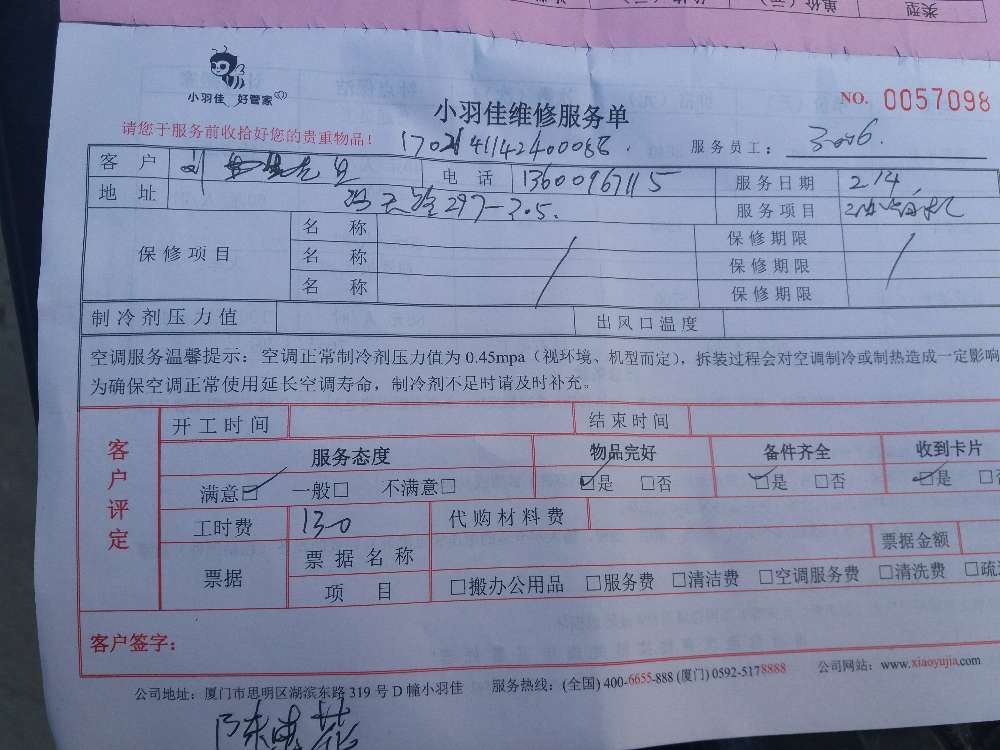 类型
单价(元)
小羽佳 好管家
小羽佳维修服务单
NO. 0057098
请您于服务前收拾好您的贵重物品！
服务员工：
客户 刘
电话 13600967115
服务日期 2/4
地址 297-305.
服务项目 油烟机
保修项目
名称
保修期限
名称
保修期限
名称
保修期限
制冷剂压力值
出风口温度
空调服务温馨提示：空调正常制冷剂压力值为0.45mpa（视环境、机型而定），拆装过程会对空调制冷或制热造成一定影响
为确保空调正常使用延长空调寿命，制冷剂不足时请及时补充。
客户评定
开工时间
结束时间
服务态度
物品完好
备件齐全
收到卡片
满意☑ 一般□ 不满意□
☑是 □否
☑是 □否
☑是 □否
工时费 130
代购材料费
票据
票据名称
票据金额
项目
□搬办公用品 □服务费 □清洁费 □空调服务费 □清洗费 □疏
客户签字：
公司地址：厦门市思明区湖滨东路319号D幢小羽佳 服务热线：(全国) 400-6655-888 (厦门) 0592-5178888 公司网站：www.xiaoyujia.com